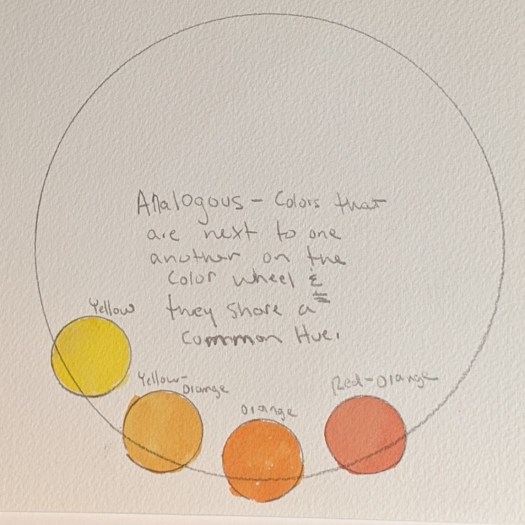 Analogous - Colors that
are next to one
another on the
Color wheel &
they share a
Common Hue.
Yellow
Yellow-
Orange
Orange
Red-Orange